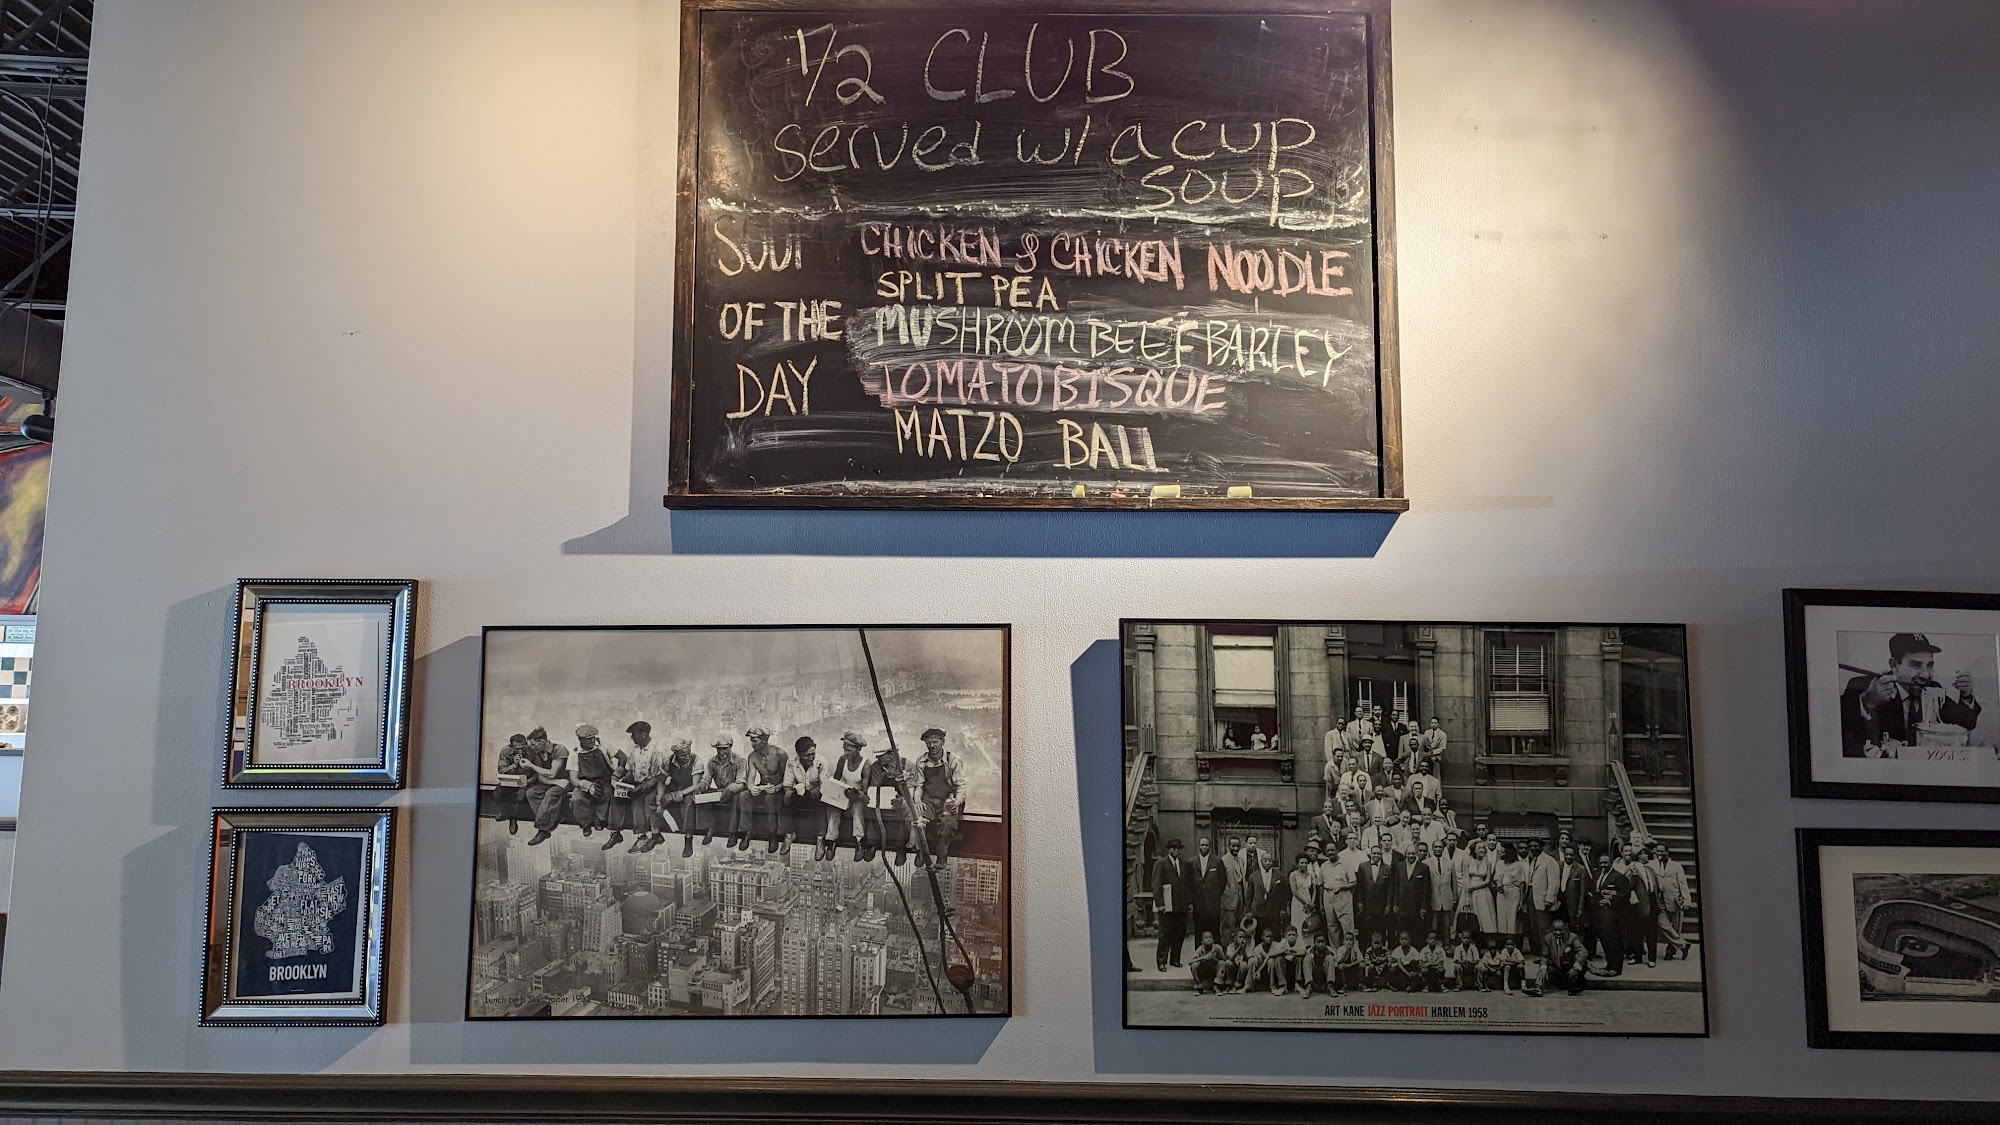 1/2 CLUB
served w/ a cup
soup
SOUP
OF THE
DAY
CHICKEN & CHICKEN NOODLE
SPLIT PEA
MUSHROOM BEEF BARLEY
TOMATO BISQUE
MATZO BALL
BROOKLYN
BROOKLYN
Lunch on a Skyscraper 1932
ART KANE JAZZ PORTRAIT HARLEM 1958
YOGI'S